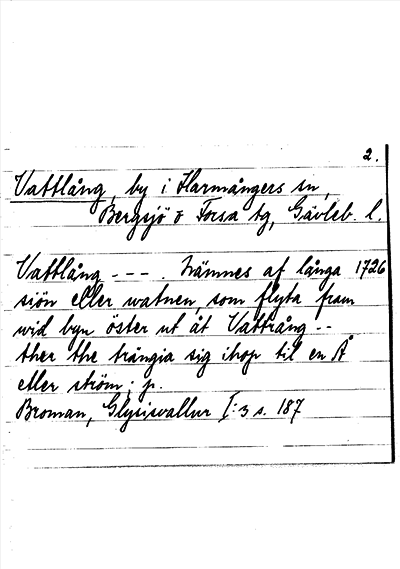 2.
Vattlång, by i Harmångers sn,
Bergsjö o Forsa tg, Gävleb. l.
Vattlång - - - . Nämnes af långa 1726
siön eller watnen, som flyta fram
wid byn öster ut åt Vattrång - -
ther the trångia sig ihop til en Å
eller ström; p.
Broman, Glysisvallur I: 3 s. 187